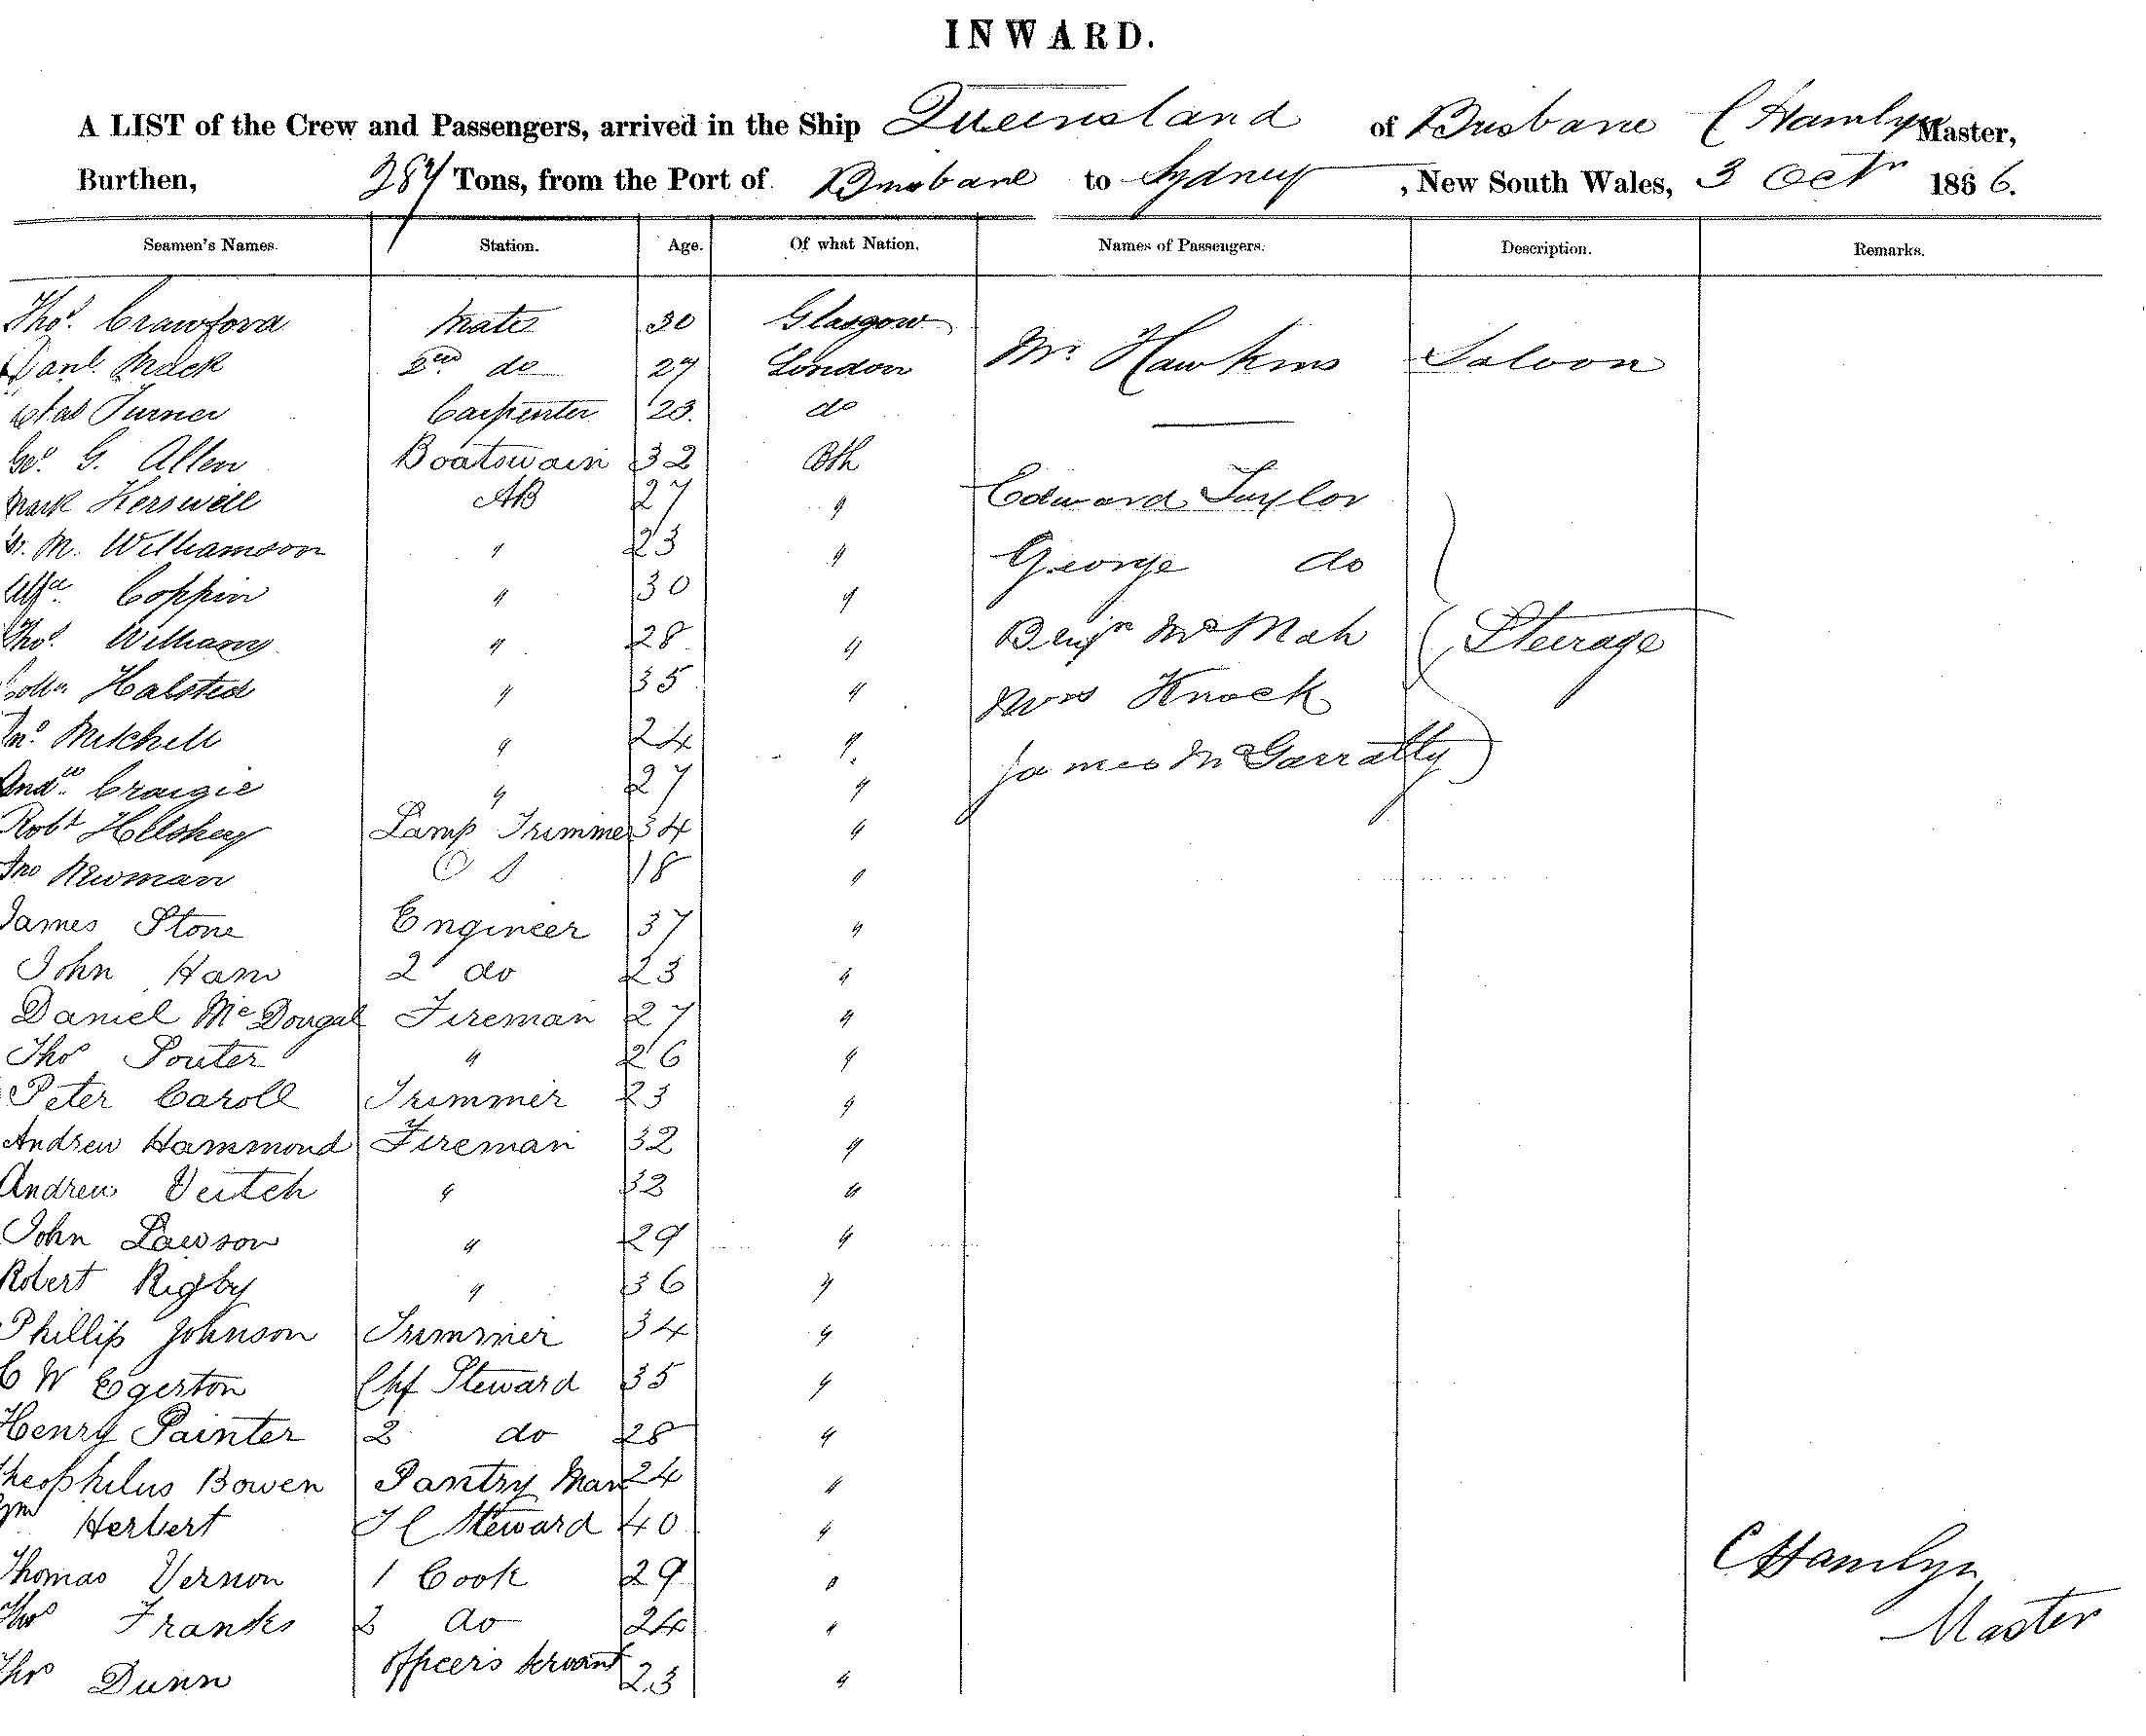 INWARD.
A LIST of the Crew and Passengers, arrived in the Ship Queensland of Brisbane C Hamlyn Master,
Burthen, 284 Tons, from the Port of Brisbane to Sydney, New South Wales, 3 Octr 1866.
Seamen's Names. Station. Age. Of what Nation. Names of Passengers. Description. Remarks.
Thos. Crawford Mate 30 Glasgow
Mr. Hawkins Saloon
Danl. Mack 2nd do 27 London
Chas Turner Carpenter 23. do
Geo. G. Allen Boatswain 32
Mark Kerswell AB 27 " Edward Taylor
M. Williamson " 23 "
George do
Coppin " 30 "
Thos. Williams " 28 " Benjn McMah Steerage
Halsted " 35 " Knock
Jno. Mitchell " 24 "
James McGarratty
Andw. Craigie " 27 "
Robt Lamp Trimmer 34 "
Jno Newman O S 18 "
James Stone Engineer 37 "
John Ham 2 do 23 "
Daniel McDougal Fireman 27 "
Thos Souter " 26 "
Peter Caroll Trimmer 23 "
Andrew Hammond Fireman 32 "
Andrew Veitch " 32 "
John Lawson " 29 "
Robert Rigby " 36 "
Phillip Johnson Trimmer 34 "
C W Egerton Chf Steward 35 "
Henry Painter 2 do 28 "
Theophilus Bowen Pantry Man 24 "
Wm Herbert Steward 40 "
C Hamlyn
Thomas Vernon 1 Cook 29 "
Thos Franks 2 do 24 "
Master
Thos Dunn officers Servant 23 "